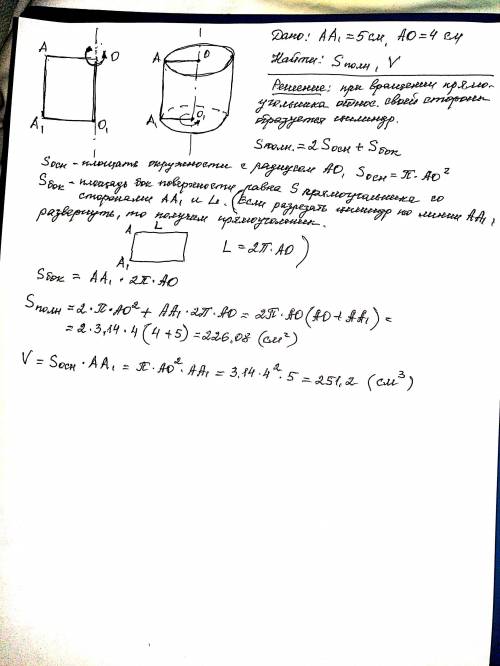 Дано: AA₁ = 5 см, AO = 4 см
Найти: Sполн, V
Решение: при вращении прямо-
угольника относ. своей стороны
образуется цилиндр.
Sполн. = 2 Sосн + Sбок
A O
A₁ O₁
A O
A₁ O₁
Sосн - площать окружности с радиусом AO, Sосн = π · AO²
Sбок - площадь бок поверхности равна S прямоугольника со
сторонами AA₁ и L. (Если разрезать цилиндр по линии AA₁,
развернуть, то получим прямоугольник.
A L
A₁
L = 2π · AO)
Sбок = AA₁ · 2π · AO
Sполн = 2 · π · AO² + AA₁ · 2π · AO = 2π · AO (AO + AA₁) =
= 2 · 3,14 · 4 (4 + 5) = 226,08 (см²)
V = Sосн · AA₁ = π · AO² · AA₁ = 3,14 · 4² · 5 = 251,2 (см³)